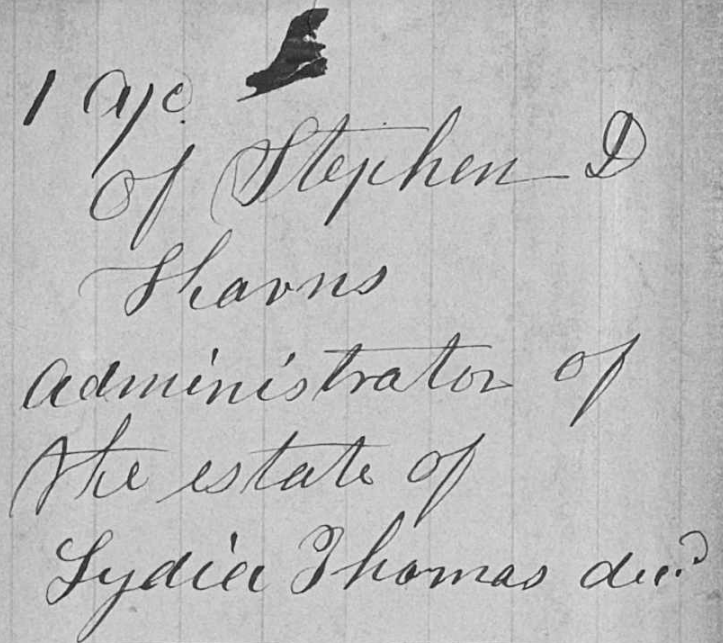 1 a/c
Of Stephen D
Shavns
administrator of
the estate of
Lydia Thomas decd